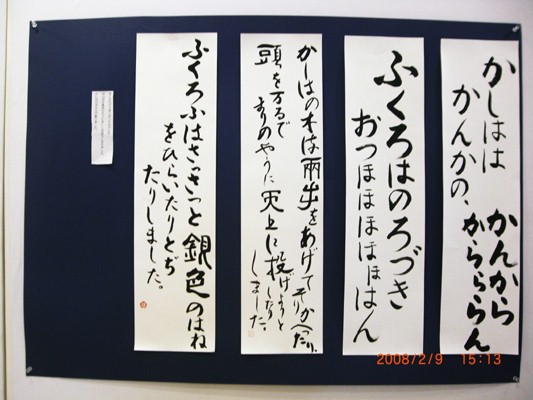 かしはは
かんかの、
かんから
からららん
ふくろはのろづき
おつほほほほほほん
かしはの木は両手をあげてそりかへつたり、
頭をまるで
まりのやうに天上に投げようと
したり
しました。
ふくろふはさっさっと銀色のはね
をひらいたりとぢ
たりしました。
2008/2/9 15:13